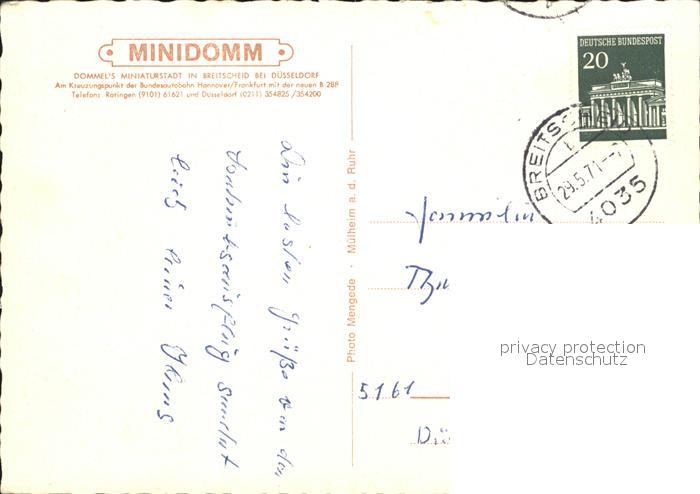 MINIDOMM
DOMMEL'S MINIATURSTADT IN BREITSCHEID BEI DÜSSELDORF
Am Kreuzungspunkt der Bundesautobahn Hannover/Frankfurt mit der neuen B 288
Telefon: Ratingen (9101) 61621 und Düsseldorf (0211) 354825 /354200
DEUTSCHE BUNDESPOST
20
BREITSCHEID
29.5.71
4035
Die besten Grüße von den
sendet
Euch
Photo Mengede · Mülheim a. d. Ruhr
Familie
5161
Dü
privacy protection
Datenschutz